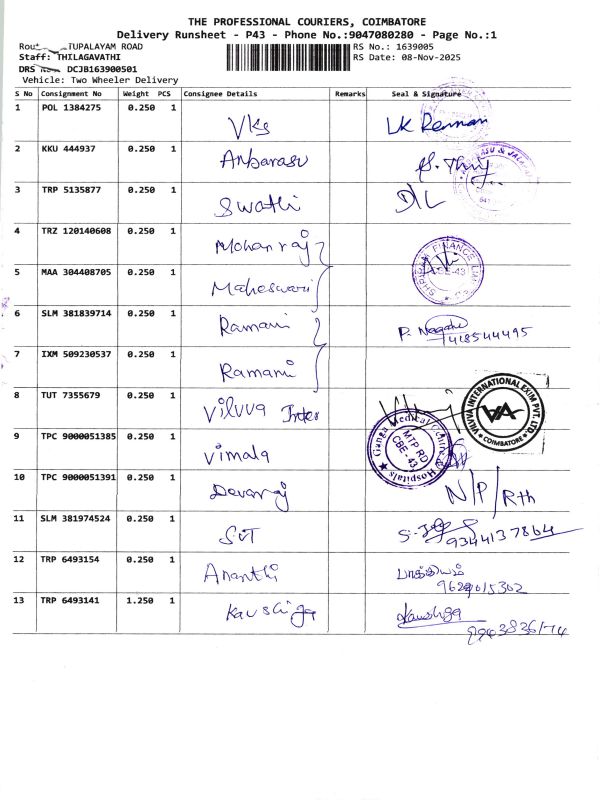 THE PROFESSIONAL COURIERS, COIMBATORE
Delivery Runsheet - P43 - Phone No.:9047080280 - Page No.:1
TUPALAYAM ROAD
RS No.: 1639005
Staff: THILAGAVATHI
RS Date: 08-Nov-2025
DRS DCJB163900501
Vehicle: Two Wheeler Delivery
S No Consignment No Weight PCS Consignee Details Remarks Seal & Signature
1 POL 1384275 0.250 1 Vks
2 KKU 444937 0.250 1 Anbarasu
3 TRP 5135877 0.250 1 Swathi
4 TRZ 120140608 0.250 1 Mohanraj
5 MAA 304408705 0.250 1 Maheswari
6 SLM 381839714 0.250 1 Ramani
7 IXM 509230537 0.250 1 Ramani
8 TUT 7355679 0.250 1 Vilvva Inter
VILVVA INTERNATIONAL EXIM PVT. LTD.
COIMBATORE
9 TPC 9000051385 0.250 1 Vimala
Ganga Medical Centre & Hospitals
MTP RD
CBE - 43
10 TPC 9000051391 0.250 1 Devaraj N/P/Rth
11 SLM 381974524 0.250 1 SVT
9344137864
12 TRP 6493154 0.250 1 Ananthi
13 TRP 6493141 1.250 1 Kaushiga Kaushga